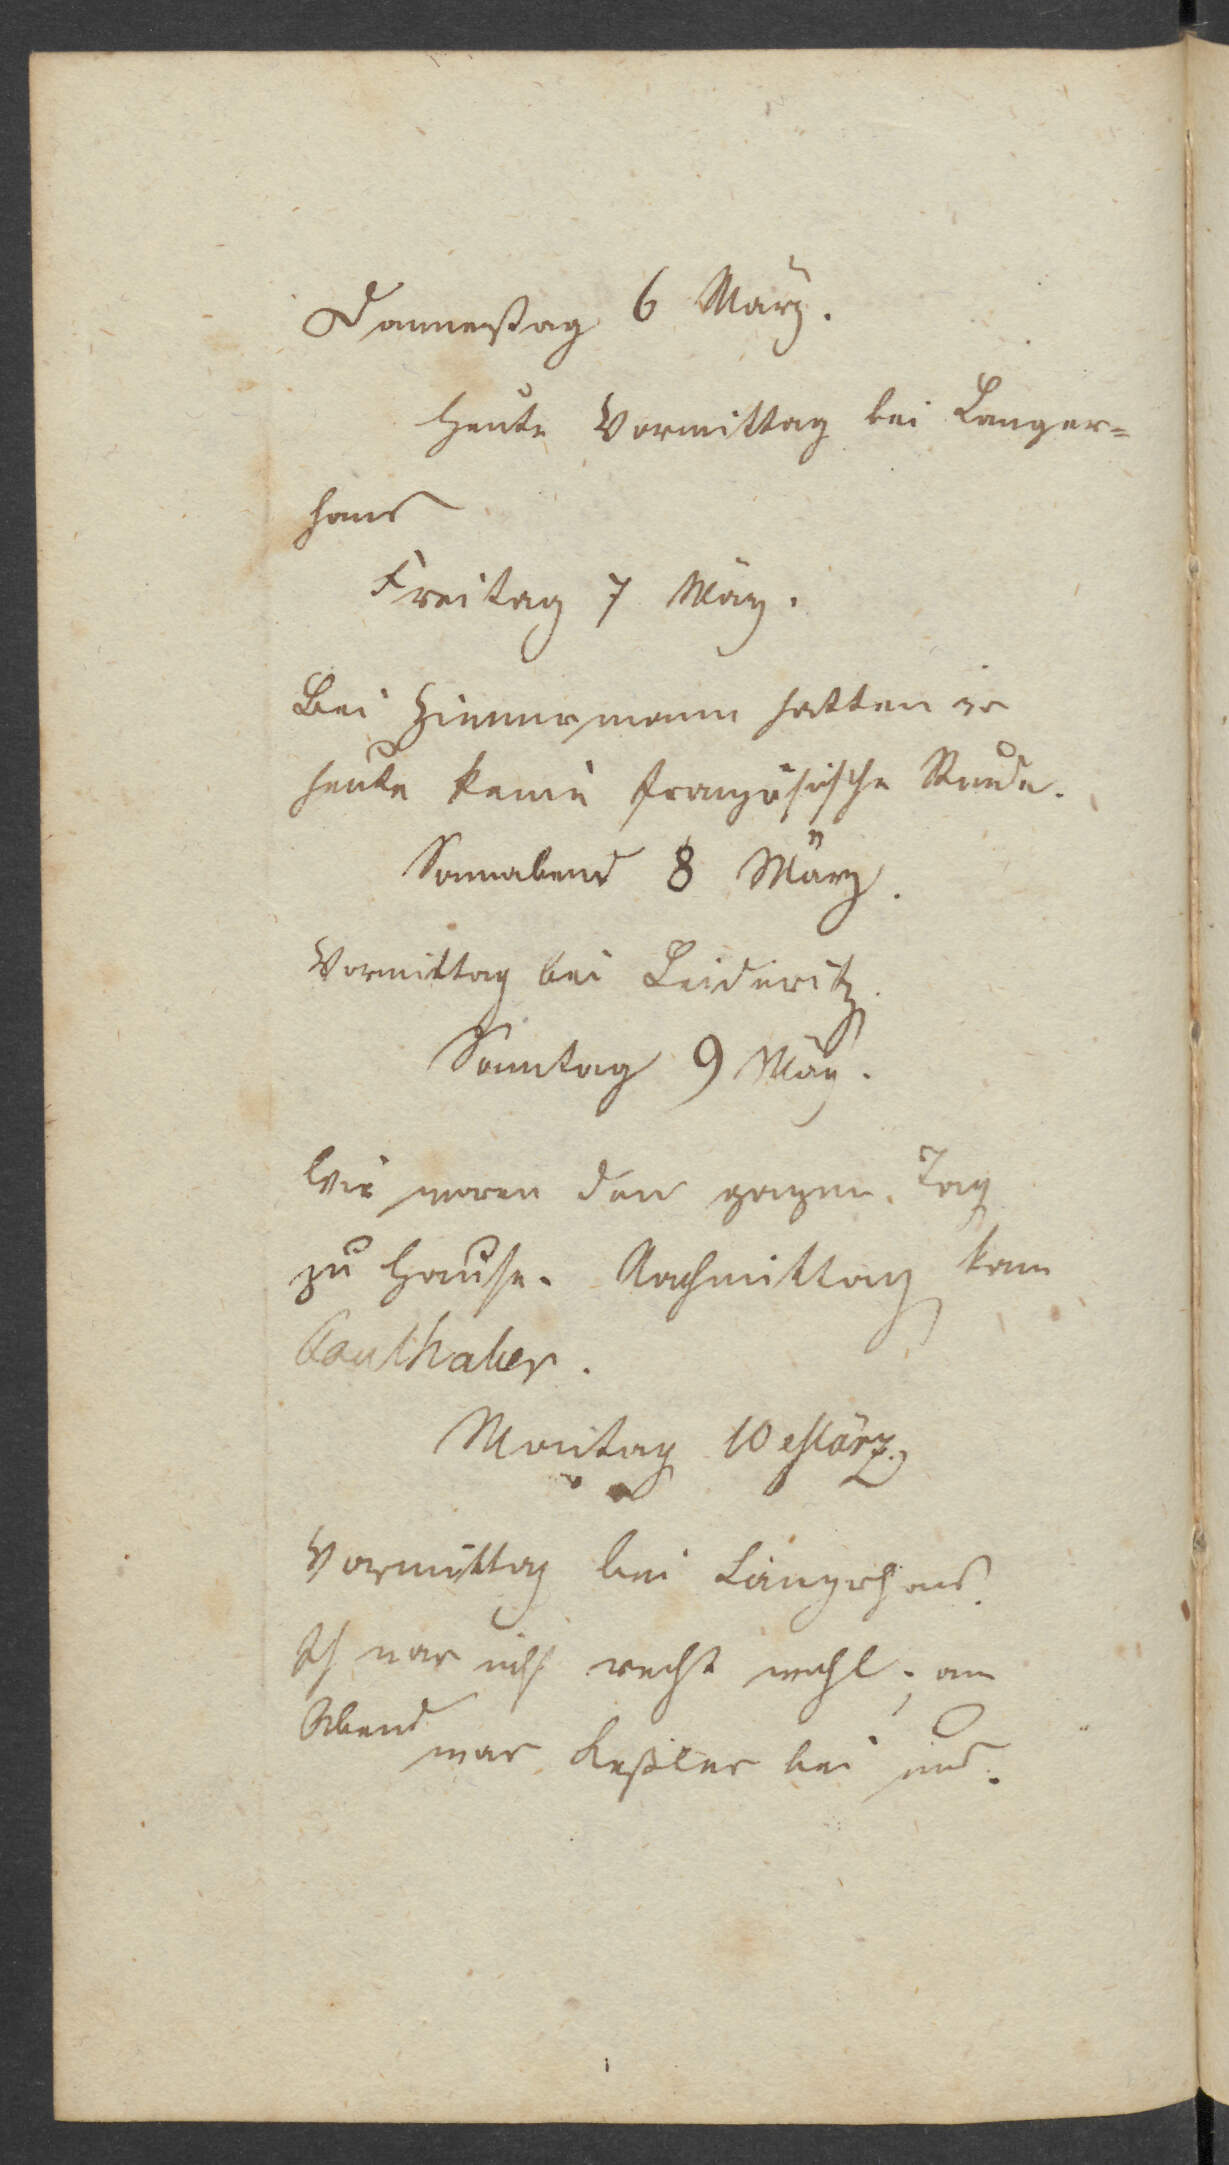 Donnerstag 6 März.
Heute Vormittag bei Langer=
hans
Freitag 7 März.
Bei Zimmermann hatten wir
heute keine französische Stunde.
Sonnabend 8 März.
Vormittag bei Leideritz.
Sonntag 9 März.
Wir waren den ganzen Tag
zu Hause. Nachmittag kam
Faulhaber.
Montag 10 März.
Vormittag bei Langerhans.
Ich war nicht recht wohl; am
Abend
war Keßler bei uns.